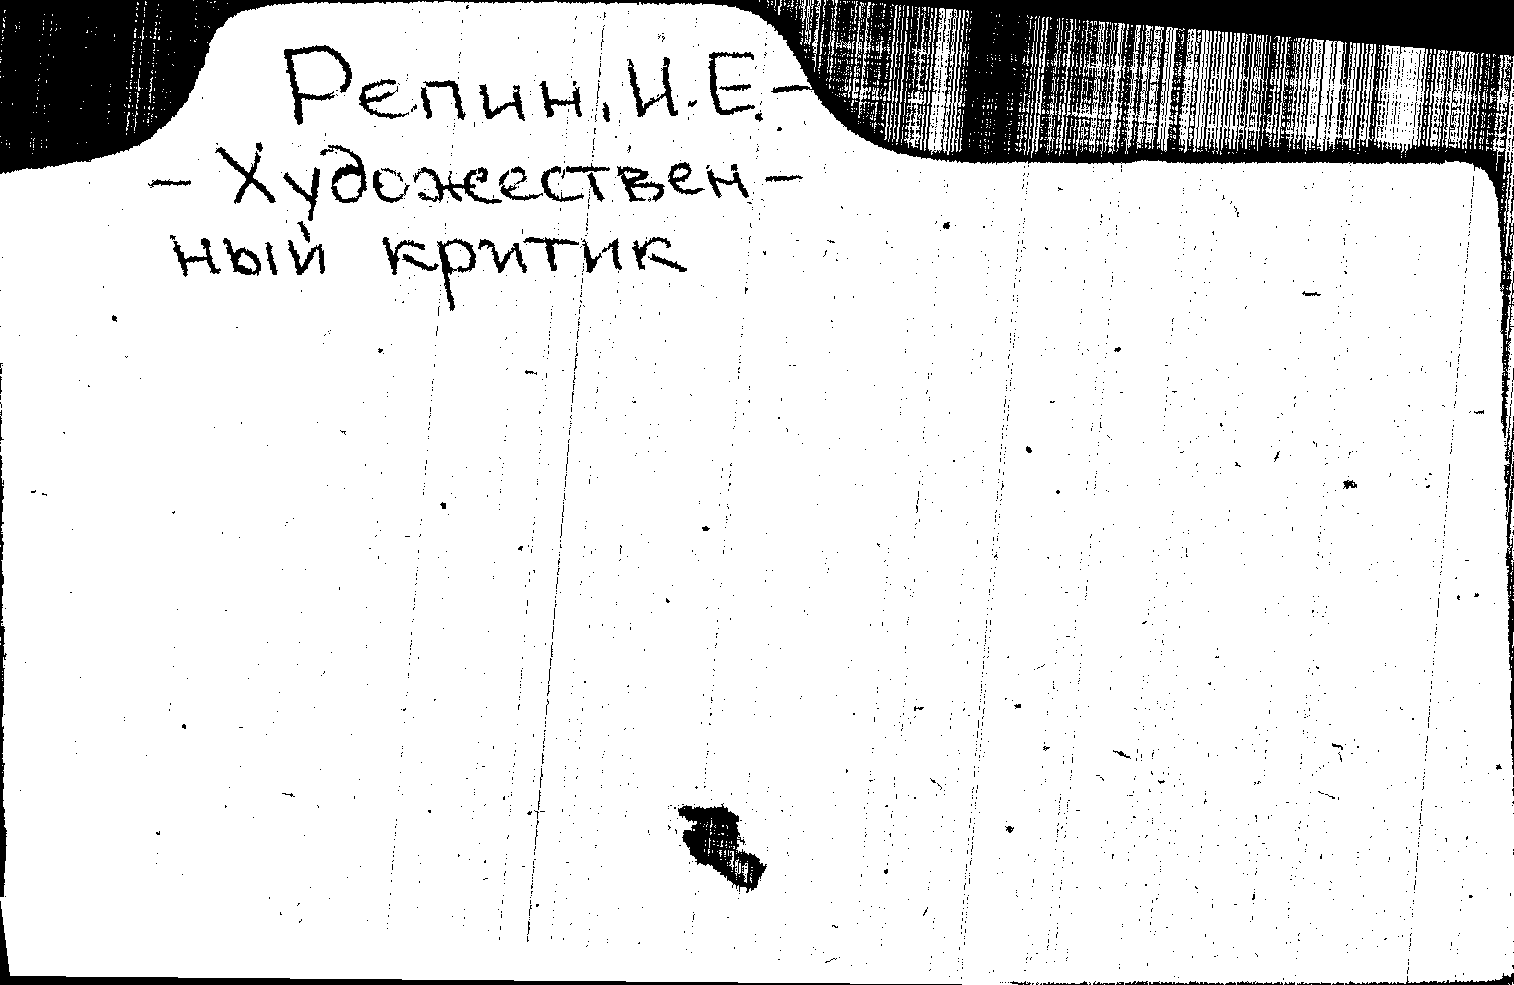 Репин, И.Е. –
– Художествен –
ный критик